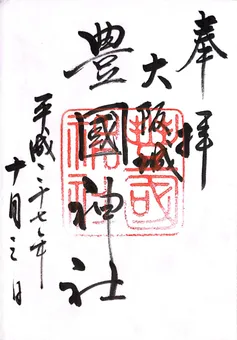 奉拝
大阪城
豊國神社
平成二十七年
十月三日